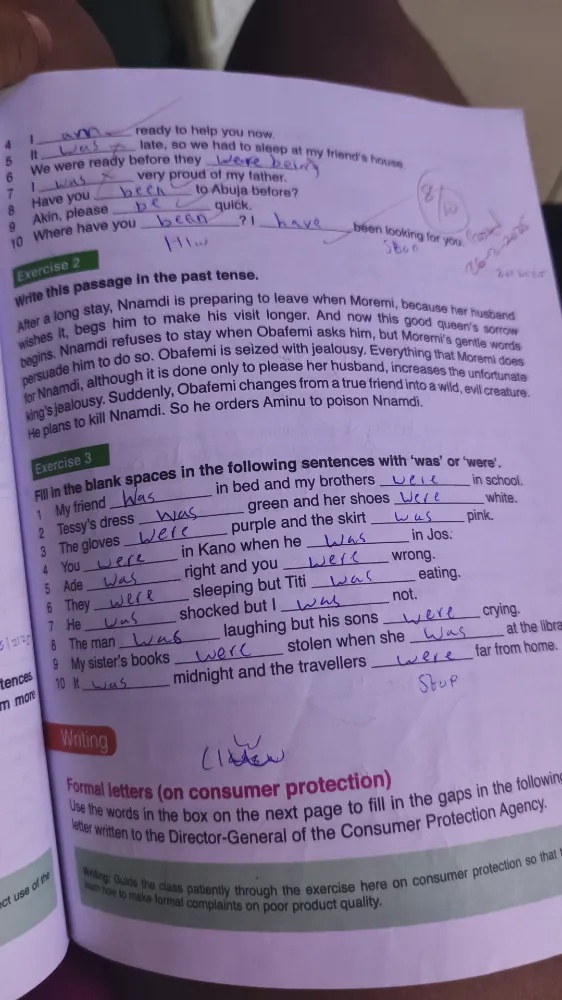 4 I am ready to help you now.
5 It was late, so we had to sleep at my friend's house.
6 We were ready before they were being
7 I was very proud of my father.
8 Have you been to Abuja before?
9 Akin, please be quick.
10 Where have you been ? I have been looking for you.
H/W
Stop
8/10
Exercise 2
Write this passage in the past tense.
After a long stay, Nnamdi is preparing to leave when Moremi, because her husband
wishes it, begs him to make his visit longer. And now this good queen's sorrow
begins. Nnamdi refuses to stay when Obafemi asks him, but Moremi's gentle words
persuade him to do so. Obafemi is seized with jealousy. Everything that Moremi does
for Nnamdi, although it is done only to please her husband, increases the unfortunate
king's jealousy. Suddenly, Obafemi changes from a true friend into a wild, evil creature.
He plans to kill Nnamdi. So he orders Aminu to poison Nnamdi.
Exercise 3
Fill in the blank spaces in the following sentences with 'was' or 'were'.
1 My friend was in bed and my brothers were in school.
2 Tessy's dress was green and her shoes were white.
3 The gloves were purple and the skirt was pink.
4 You were in Kano when he was in Jos.
5 Ade was right and you were wrong.
6 They were sleeping but Titi was eating.
7 He was shocked but I was not.
8 The man was laughing but his sons were crying.
9 My sister's books were stolen when she was at the libra
10 It was midnight and the travellers were far from home.
Stop
Writing
Formal letters (on consumer protection)
Use the words in the box on the next page to fill in the gaps in the following
letter written to the Director-General of the Consumer Protection Agency.
Writing: Guide the class patiently through the exercise here on consumer protection so that
learn how to make formal complaints on poor product quality.
tences
m more
ct use of the